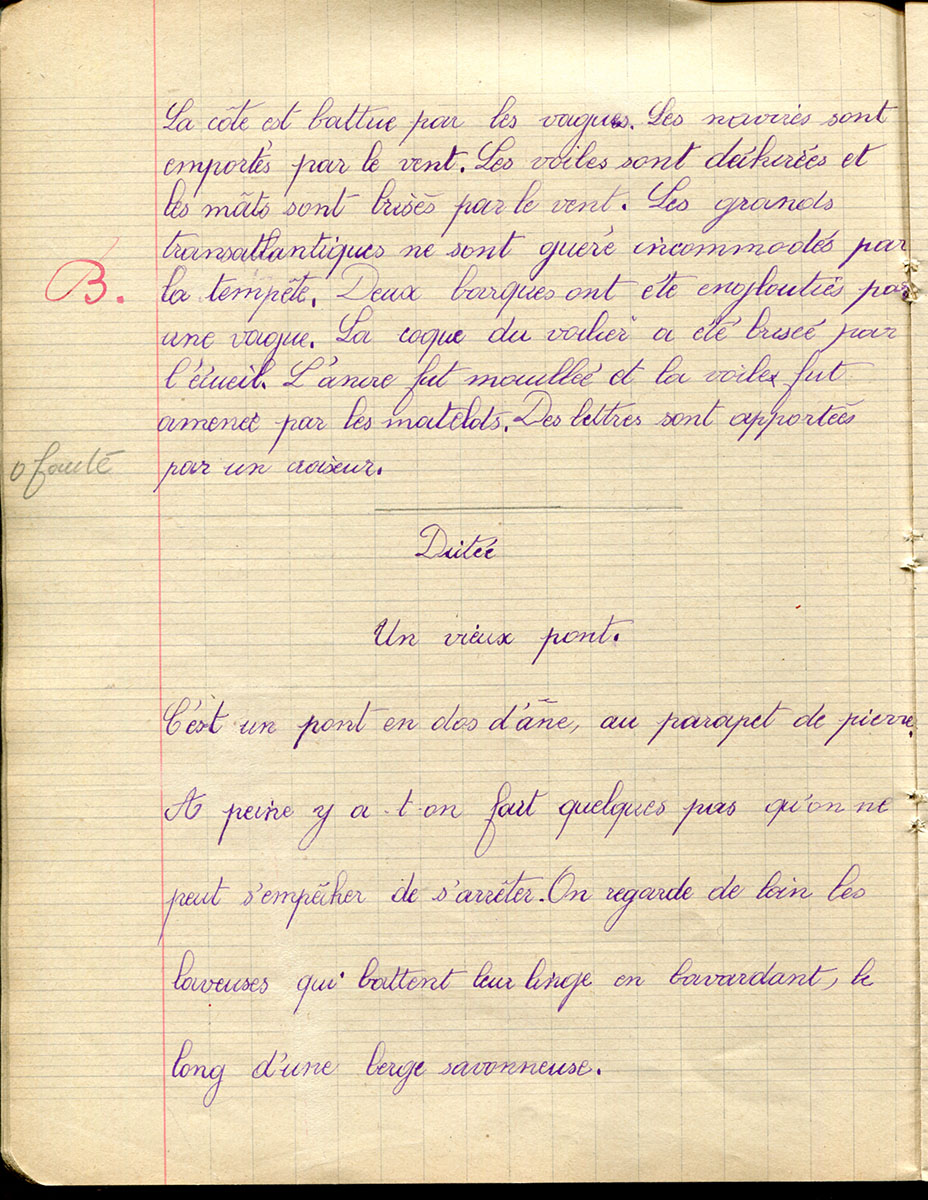 La côte est battue par les vagues. Les navires sont
emportés par le vent. Les voiles sont déchirées et
les mâts sont brisés par le vent. Les grands
transatlantiques ne sont guère incommodés par
B.
la tempête. Deux barques ont été englouties par
une vague. La coque du voilier a été brisée par
l'écueil. L'ancre fut mouillée et la voile fut
amenée par les matelots. Des lettres sont apportées
0 faute
par un croiseur.
Dictée
Un vieux pont.
C'est un pont en dos d'âne, au parapet de pierre.
A peine y a-t-on fait quelques pas qu'on ne
peut s'empêcher de s'arrêter. On regarde de loin les
laveuses qui battent leur linge en bavardant, le
long d'une berge savonneuse.